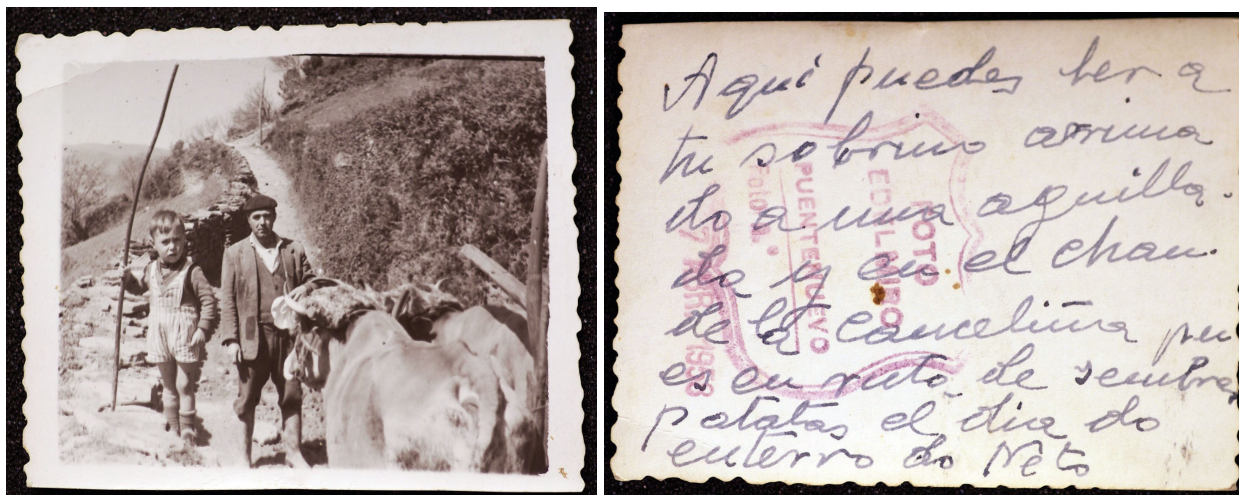 Aqui puedes ber a
tu sobrino arrima
do a una aguilla.
da y en el chan.
de la canceliña
es en ruto de sembra
patatas el dia do
enterro do Neto
FOTO
EDELMIRO
PUENTENUEVO
Foto n.º
1958